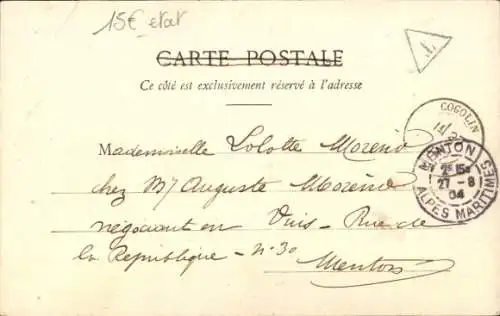 15€ etat
CARTE POSTALE
Ce côté est exclusivement réservé à l'adresse
T
COGOLIN
MENTON
2E 15
27 -8
04
ALPES MARITIMES
Mademoiselle Lolotte Moreno
chez Mr Auguste Moreno
négociant en Vins - Rue de
la République - N° 30
Menton